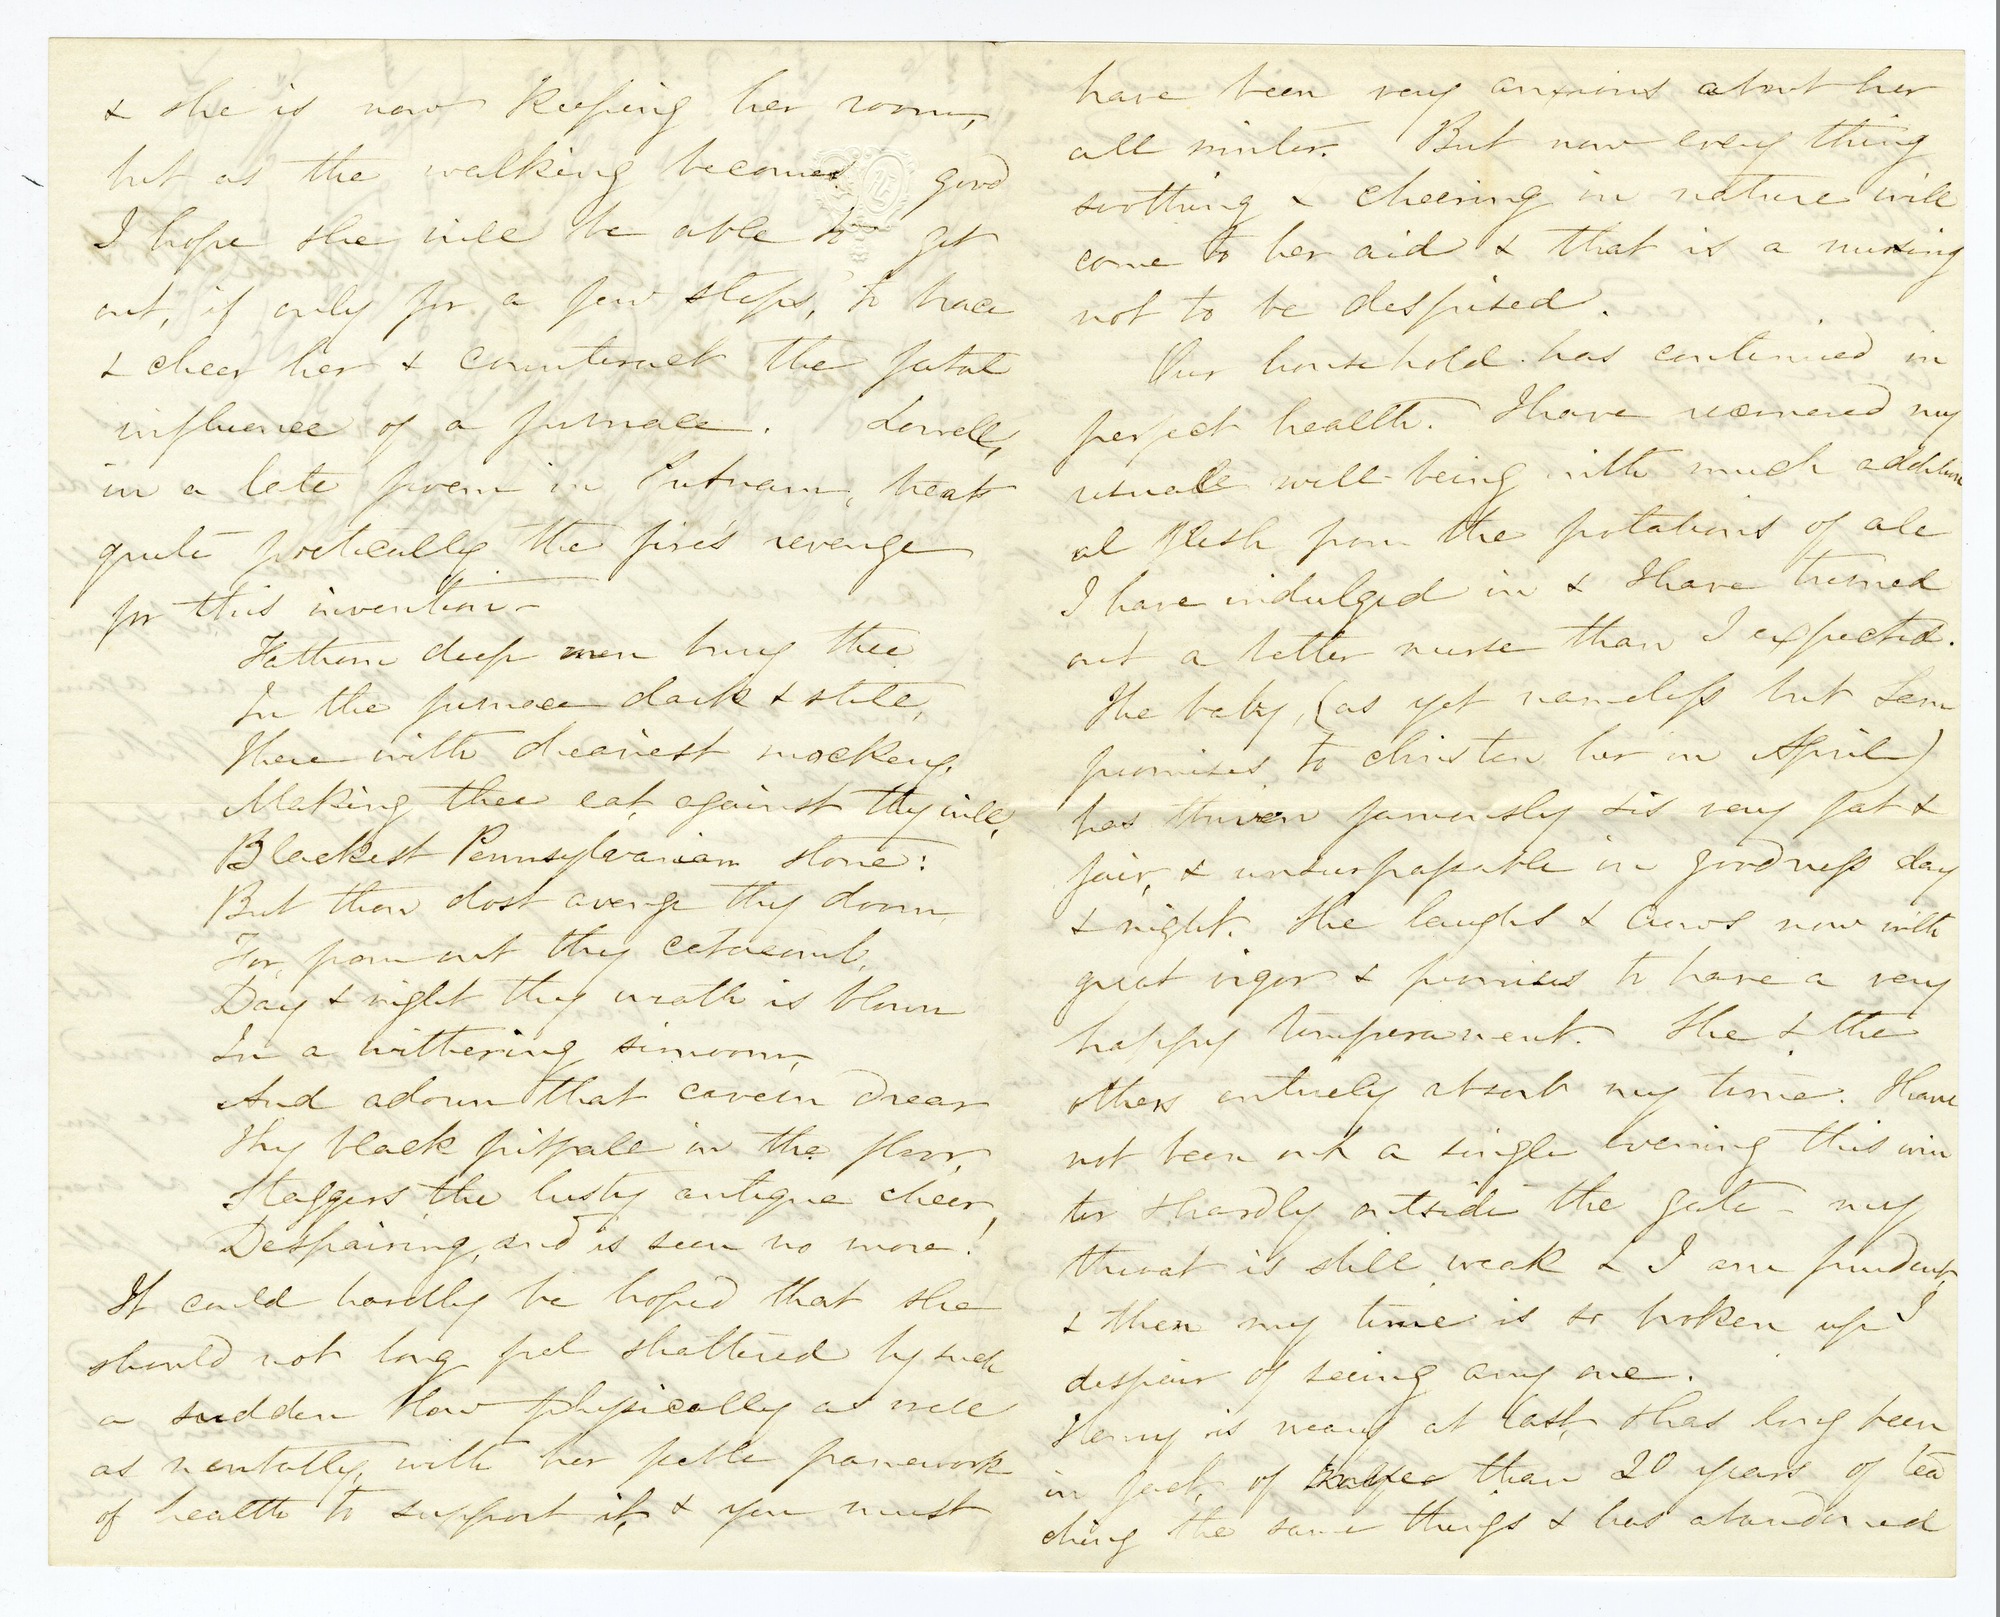 & she is now keeping her room,
but as the walking becomes good
I hope she will be able to get
out, if only for a few steps, to brace
& cheer her & counteract the fatal
influence of a furnace. Lowell,
in a late poem in Putnam, treats
quite poetically the fire's revenge
for this invention—
Fathom deep men bury thee
In the furnace dark & still,
There with dreariest mockery,
Making thee eat, against thy will,
Blackest Pennsylvanian stone:
But thou dost avenge thy doom,
For, from out thy catacomb,
Day & night thy wrath is blown
In a withering simoom,
And adown that cavern drear
Thy black pitfall in the floor,
Staggers the lusty antique cheer,
Despairing, and is seen no more!
It could hardly be hoped that she
should not long feel shattered by such
a sudden blow physically as well
as mentally, with her feeble framework
of health to support it, & you must
have been very anxious about her
all winter. But now every thing
soothing & cheering in nature will
come to her aid & that is a nursing
not to be despised.
Our household has continued in
perfect health. I have recovered my
usual well-being with much addition
al flesh from the potations of ale
I have indulged in & I have turned
out a better nurse than I expected.
The baby, (as yet nameless but Sam
promises to christen her in April)
has thriven famously & is very fat &
fair, & unsurpassable in goodness day
& night. She laughs & crows now with
great vigor & promises to have a very
happy temperament. She & the
others entirely absorb my time. I have
not been out a single evening this win
ter & hardly outside the gate – my
throat is still weak & I am prudent,
& then my time is so broken up I
despair of seeing any one.
Henry is weary at last, & has long been
in fact, of than 20 years of tea
ching the same things & has abandoned